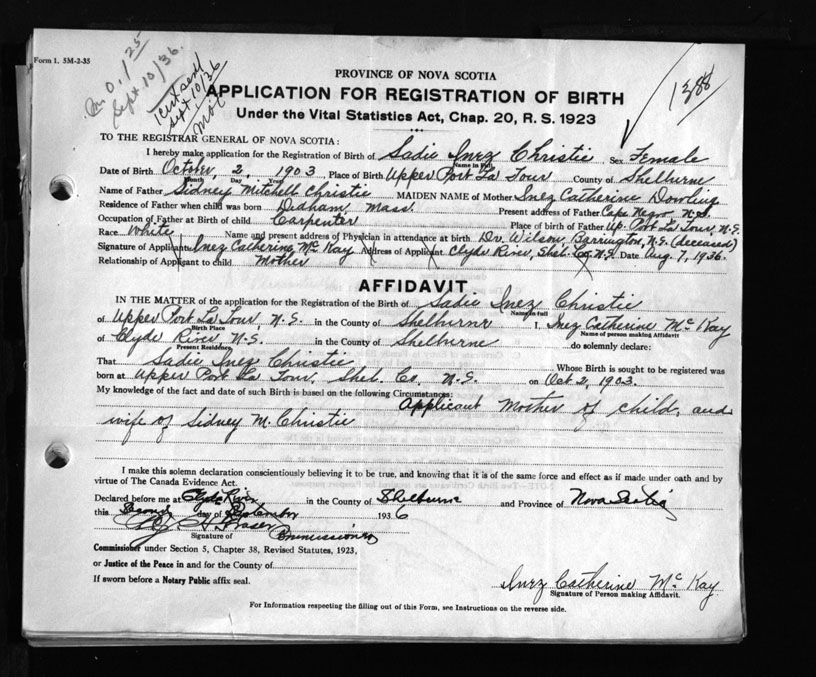 Form 1. 5M-2-35
M.O. 1.25
Sept. 10/36
Sept 10/36
1388
PROVINCE OF NOVA SCOTIA
APPLICATION FOR REGISTRATION OF BIRTH
Under the Vital Statistics Act, Chap. 20, R. S. 1923
TO THE REGISTRAR GENERAL OF NOVA SCOTIA:
I hereby make application for the Registration of Birth of Sadie Inez Christie Sex Female
Name in Full
Date of Birth October, 2, 1903, Place of Birth Upper Port La Tour County of Shelburne
Month Day Year
Name of Father Sidney Mitchell Christie MAIDEN NAME of Mother Inez Catherine Dowling
Residence of Father when child was born Dedham, Mass. Present address of Father Cape Negro, N.S.
Occupation of Father at Birth of child Carpenter Place of birth of Father Up. Port La Tour, N.S.
Race White Name and present address of Physician in attendance at birth Dr. Wilson, Barrington, N.S. (deceased)
Signature of Applicant Inez Catherine McKay Address of Applicant Clyde River, Shel. Co, N.S. Date Aug. 7, 1936.
Relationship of Applicant to child Mother
AFFIDAVIT
IN THE MATTER of the application for the Registration of the Birth of Sadie Inez Christie
Name in Full
of Upper Port La Tour, N.S. in the County of Shelburne I, Inez Catherine McKay
Birth Place Name of person making Affidavit
of Clyde River, N.S. in the County of Shelburne do solemnly declare:
Present Residence
That Sadie Inez Christie Whose Birth is sought to be registered was
born at Upper Port La Tour, Shel. Co, N.S. on Oct 2, 1903.
My knowledge of the fact and date of such Birth is based on the following Circumstances: Applicant Mother of child, and
wife of Sidney M. Christie
I make this solemn declaration conscientiously believing it to be true, and knowing that it is of the same force and effect as if made under oath and by
virtue of The Canada Evidence Act.
Declared before me at Clyde River in the County of Shelburne and Province of Nova Scotia
this Second day of September 1936
H. Fraser Commissioner
Signature of
Commissioner under Section 5, Chapter 38, Revised Statutes, 1923,
or Justice of the Peace in and for the County of
If sworn before a Notary Public affix seal.
Inez Catherine McKay.
Signature of Person making Affidavit.
For Information respecting the filling out of this Form, see Instructions on the reverse side.